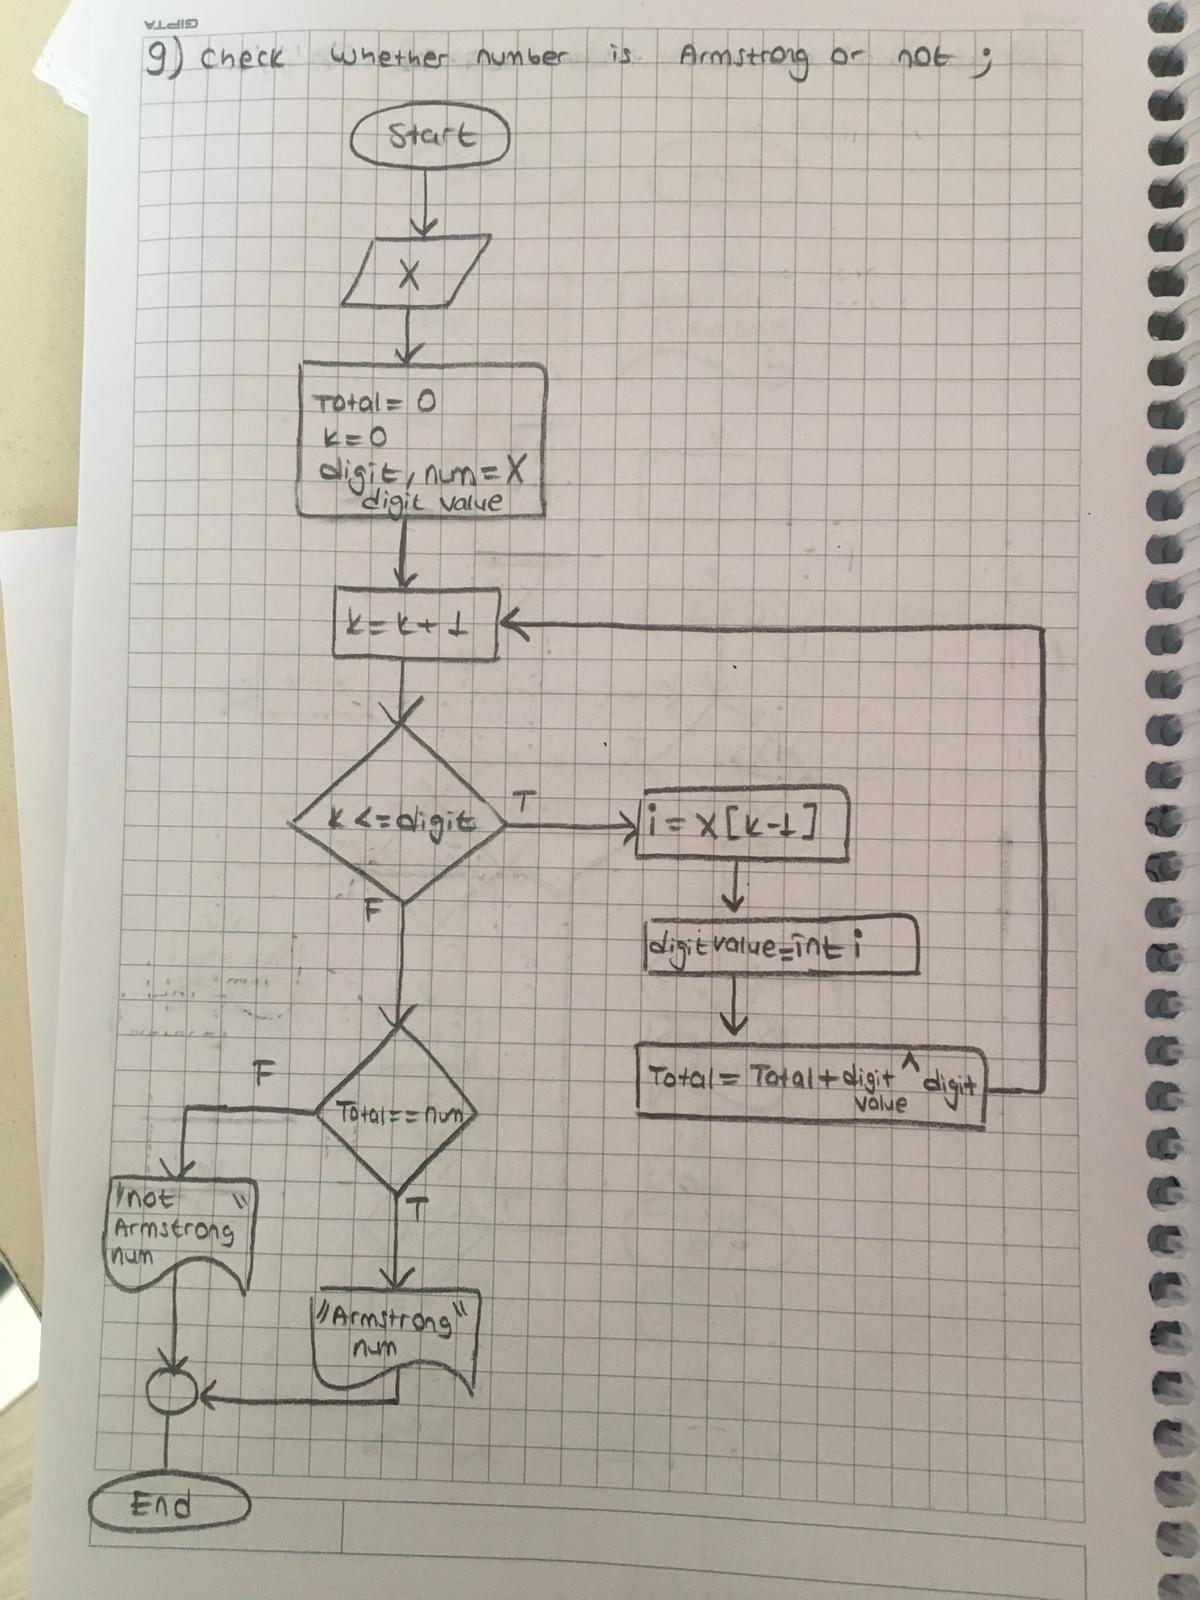 GIPTA
9) Check whether number is Armstrong or not ;
Start
X
Total = 0
k = 0
digit, num = X
digit value
k = k + 1
k <= digit
T
i = X [k-1]
F
digit value = int i
Total = Total + digit ^ digit
value
F
Total == num
T
"not "
Armstrong
num
"Armstrong"
num
End